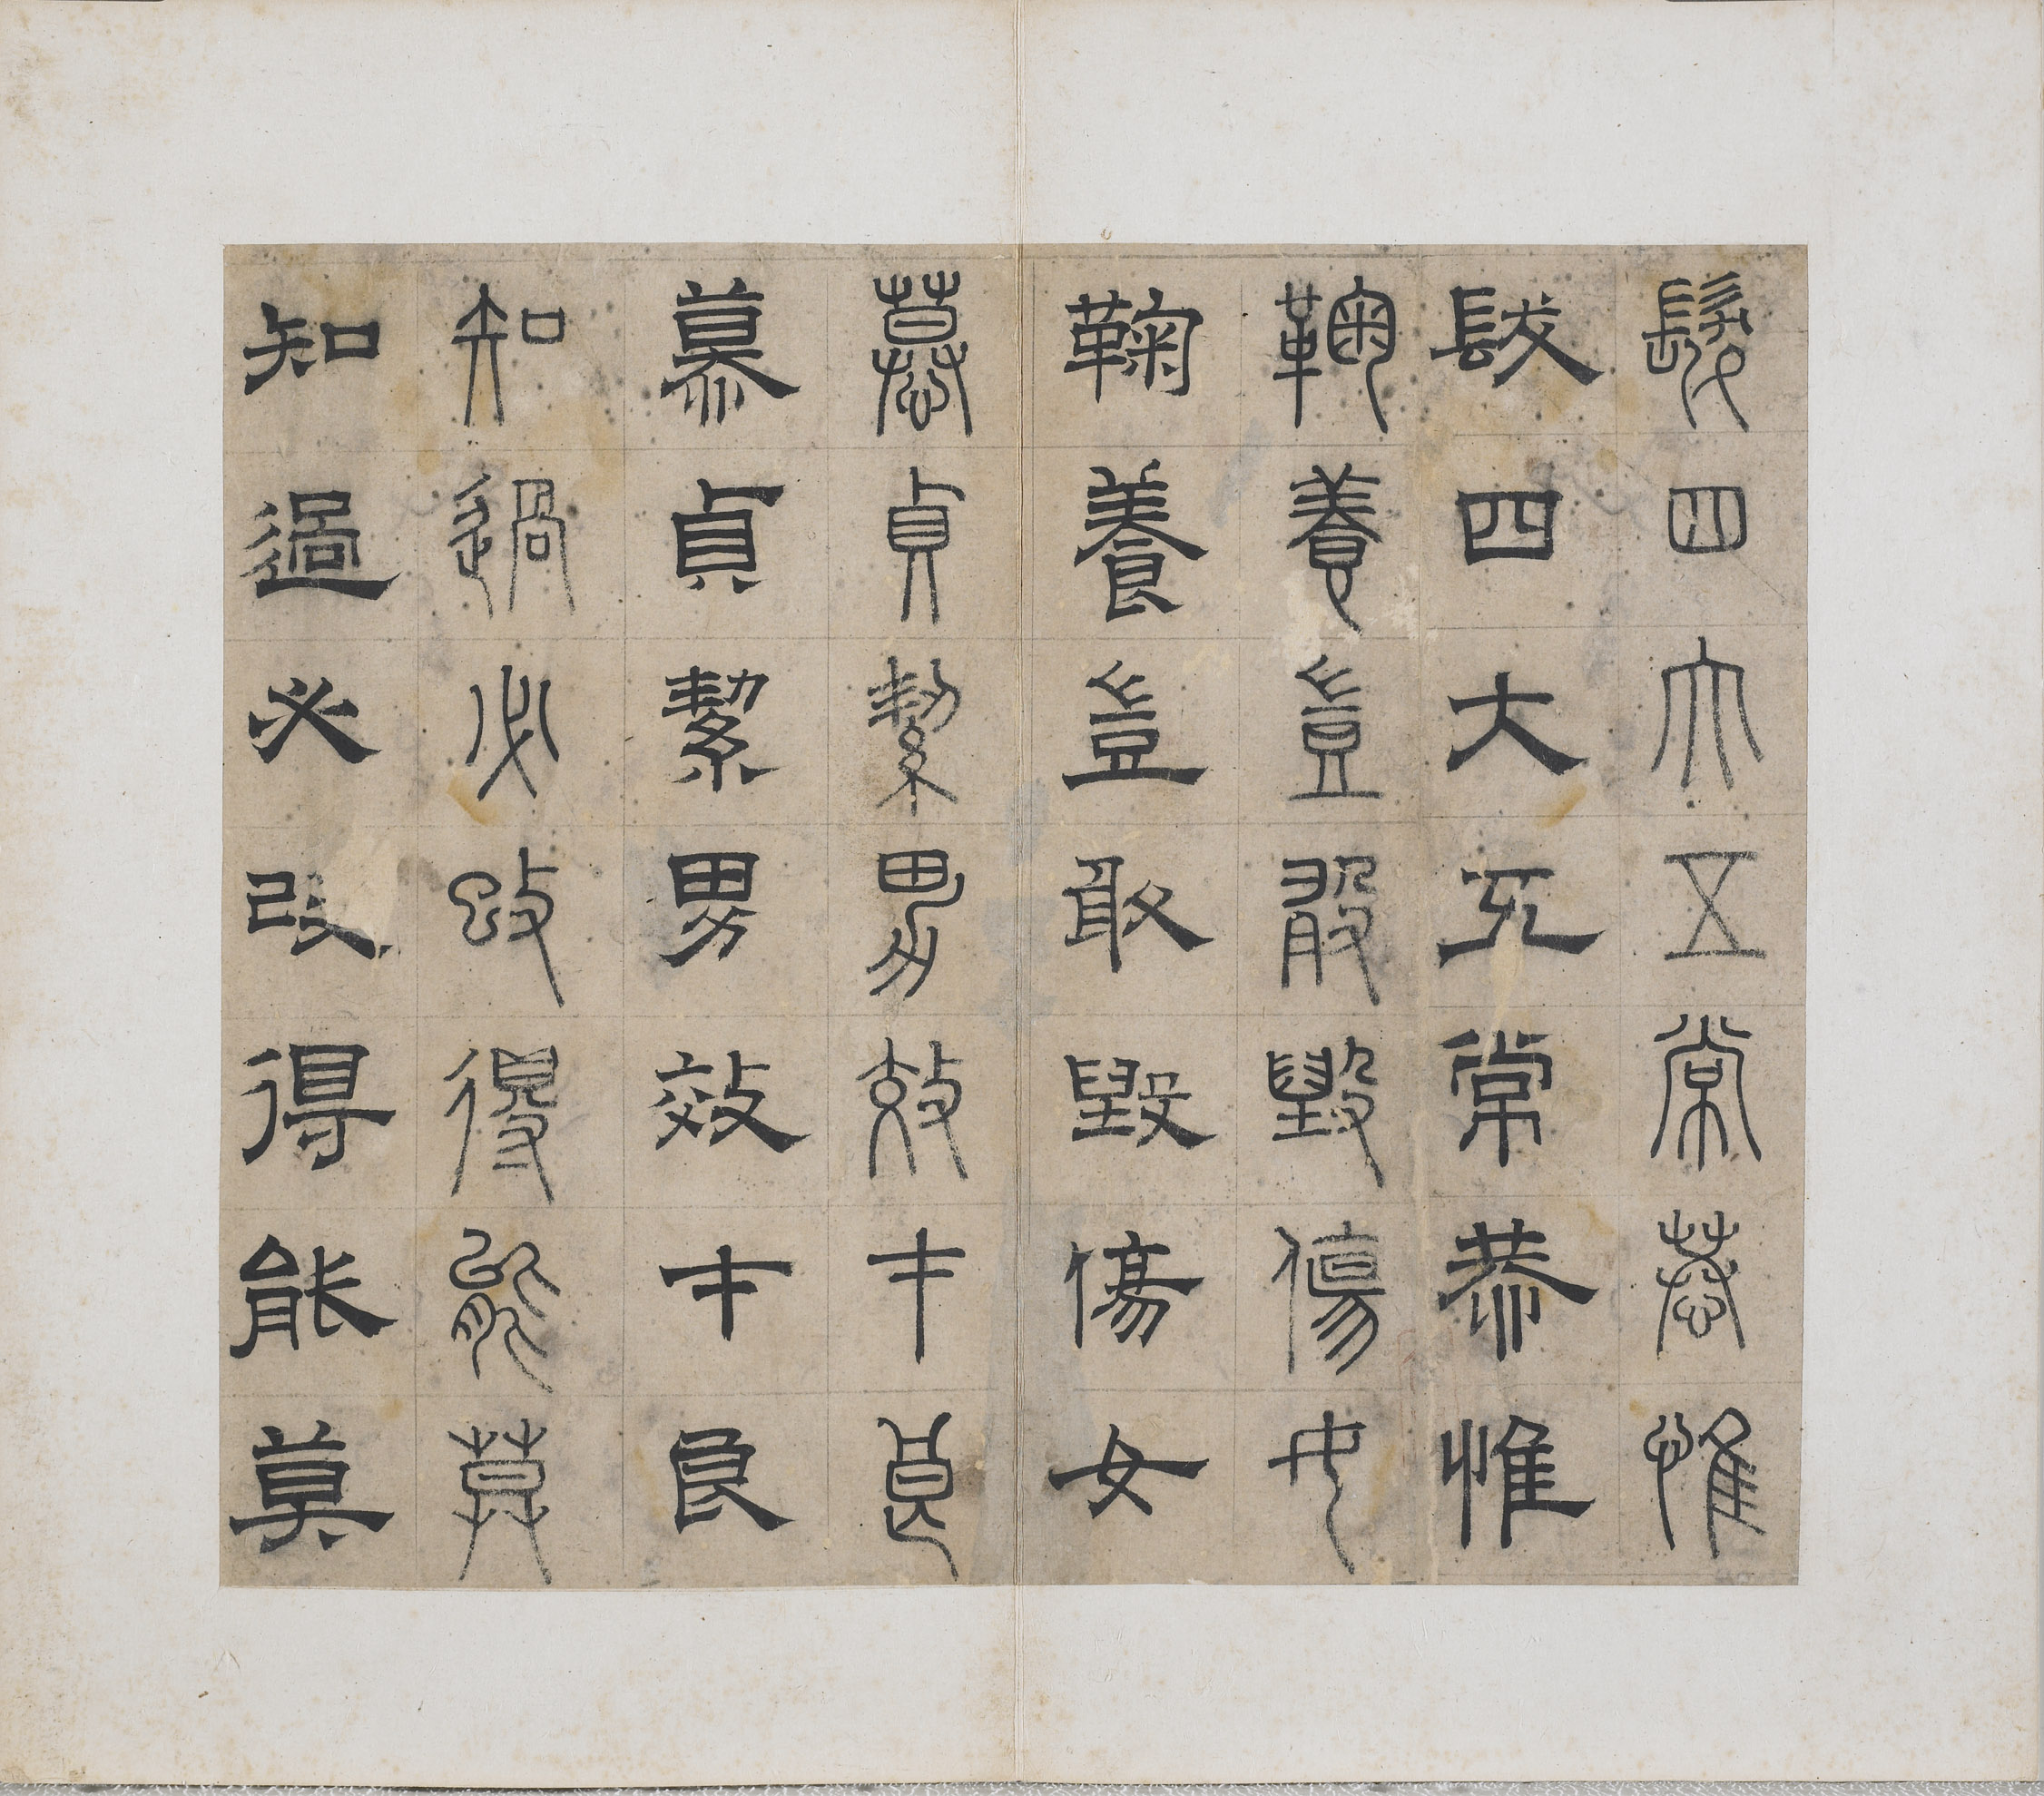 髮四大五常恭惟
髮四大五常恭惟
鞠養豈敢毀傷女
鞠養豈敢毀傷女
慕貞絜男效才良
慕貞絜男效才良
知過必改得能莫
知過必改得能莫